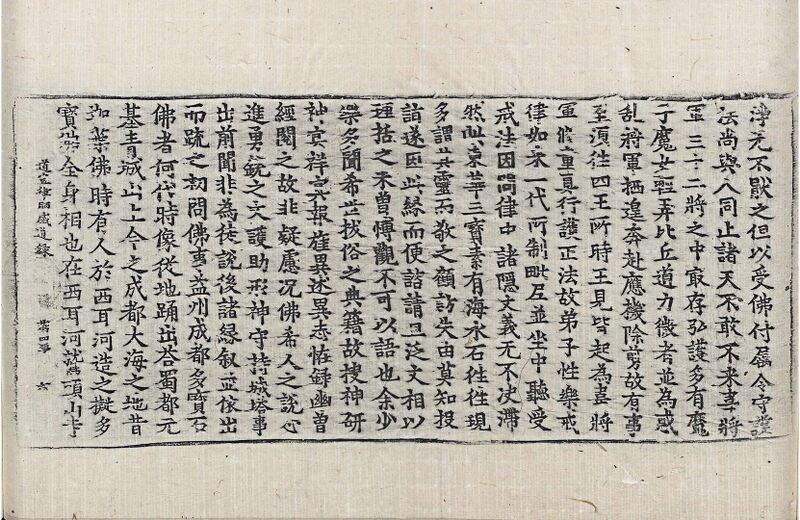 淨无不猒之但以受佛付屬令守護
法尚與人同止諸天不敢不来事將
軍三十二將之中㝡存弘護多有魔
子魔女輕弄比丘道力微者並為惑
乱將軍栖遑奔赴應機除剪故有事
至須往四王所時王見皆起為喜將
軍修童真行護正法故弟子性樂戒
律如来一代所制毗尼並坐中聽受
戒法因問律中諸隱文義无不決滯
然此東華三寶素有海水石往往現
多謂其靈而敬之顧訪失由莫知投
詣遂因此緣而便諮請且泛文相以
理括之未曾博觀不可以語也余少
樂多聞希世拔俗之典籍故搜神研
神冥祥冥報旌異述異志恠録幽曽
經閱之故非疑慮况佛希人之說心
進勇銳之文護助形神守持城塔事
出前聞非為徒說後諸緣敘並依出
而疏之初問佛事益州成都多寶石
佛者何代時像從地踊出荅蜀都元
基青城山上今之成都大海之地昔
迦葉佛時有人於西耳河造之擬多
寶佛全身相也在西耳河鷲頭山寺
道宣律師感通録 第四 六